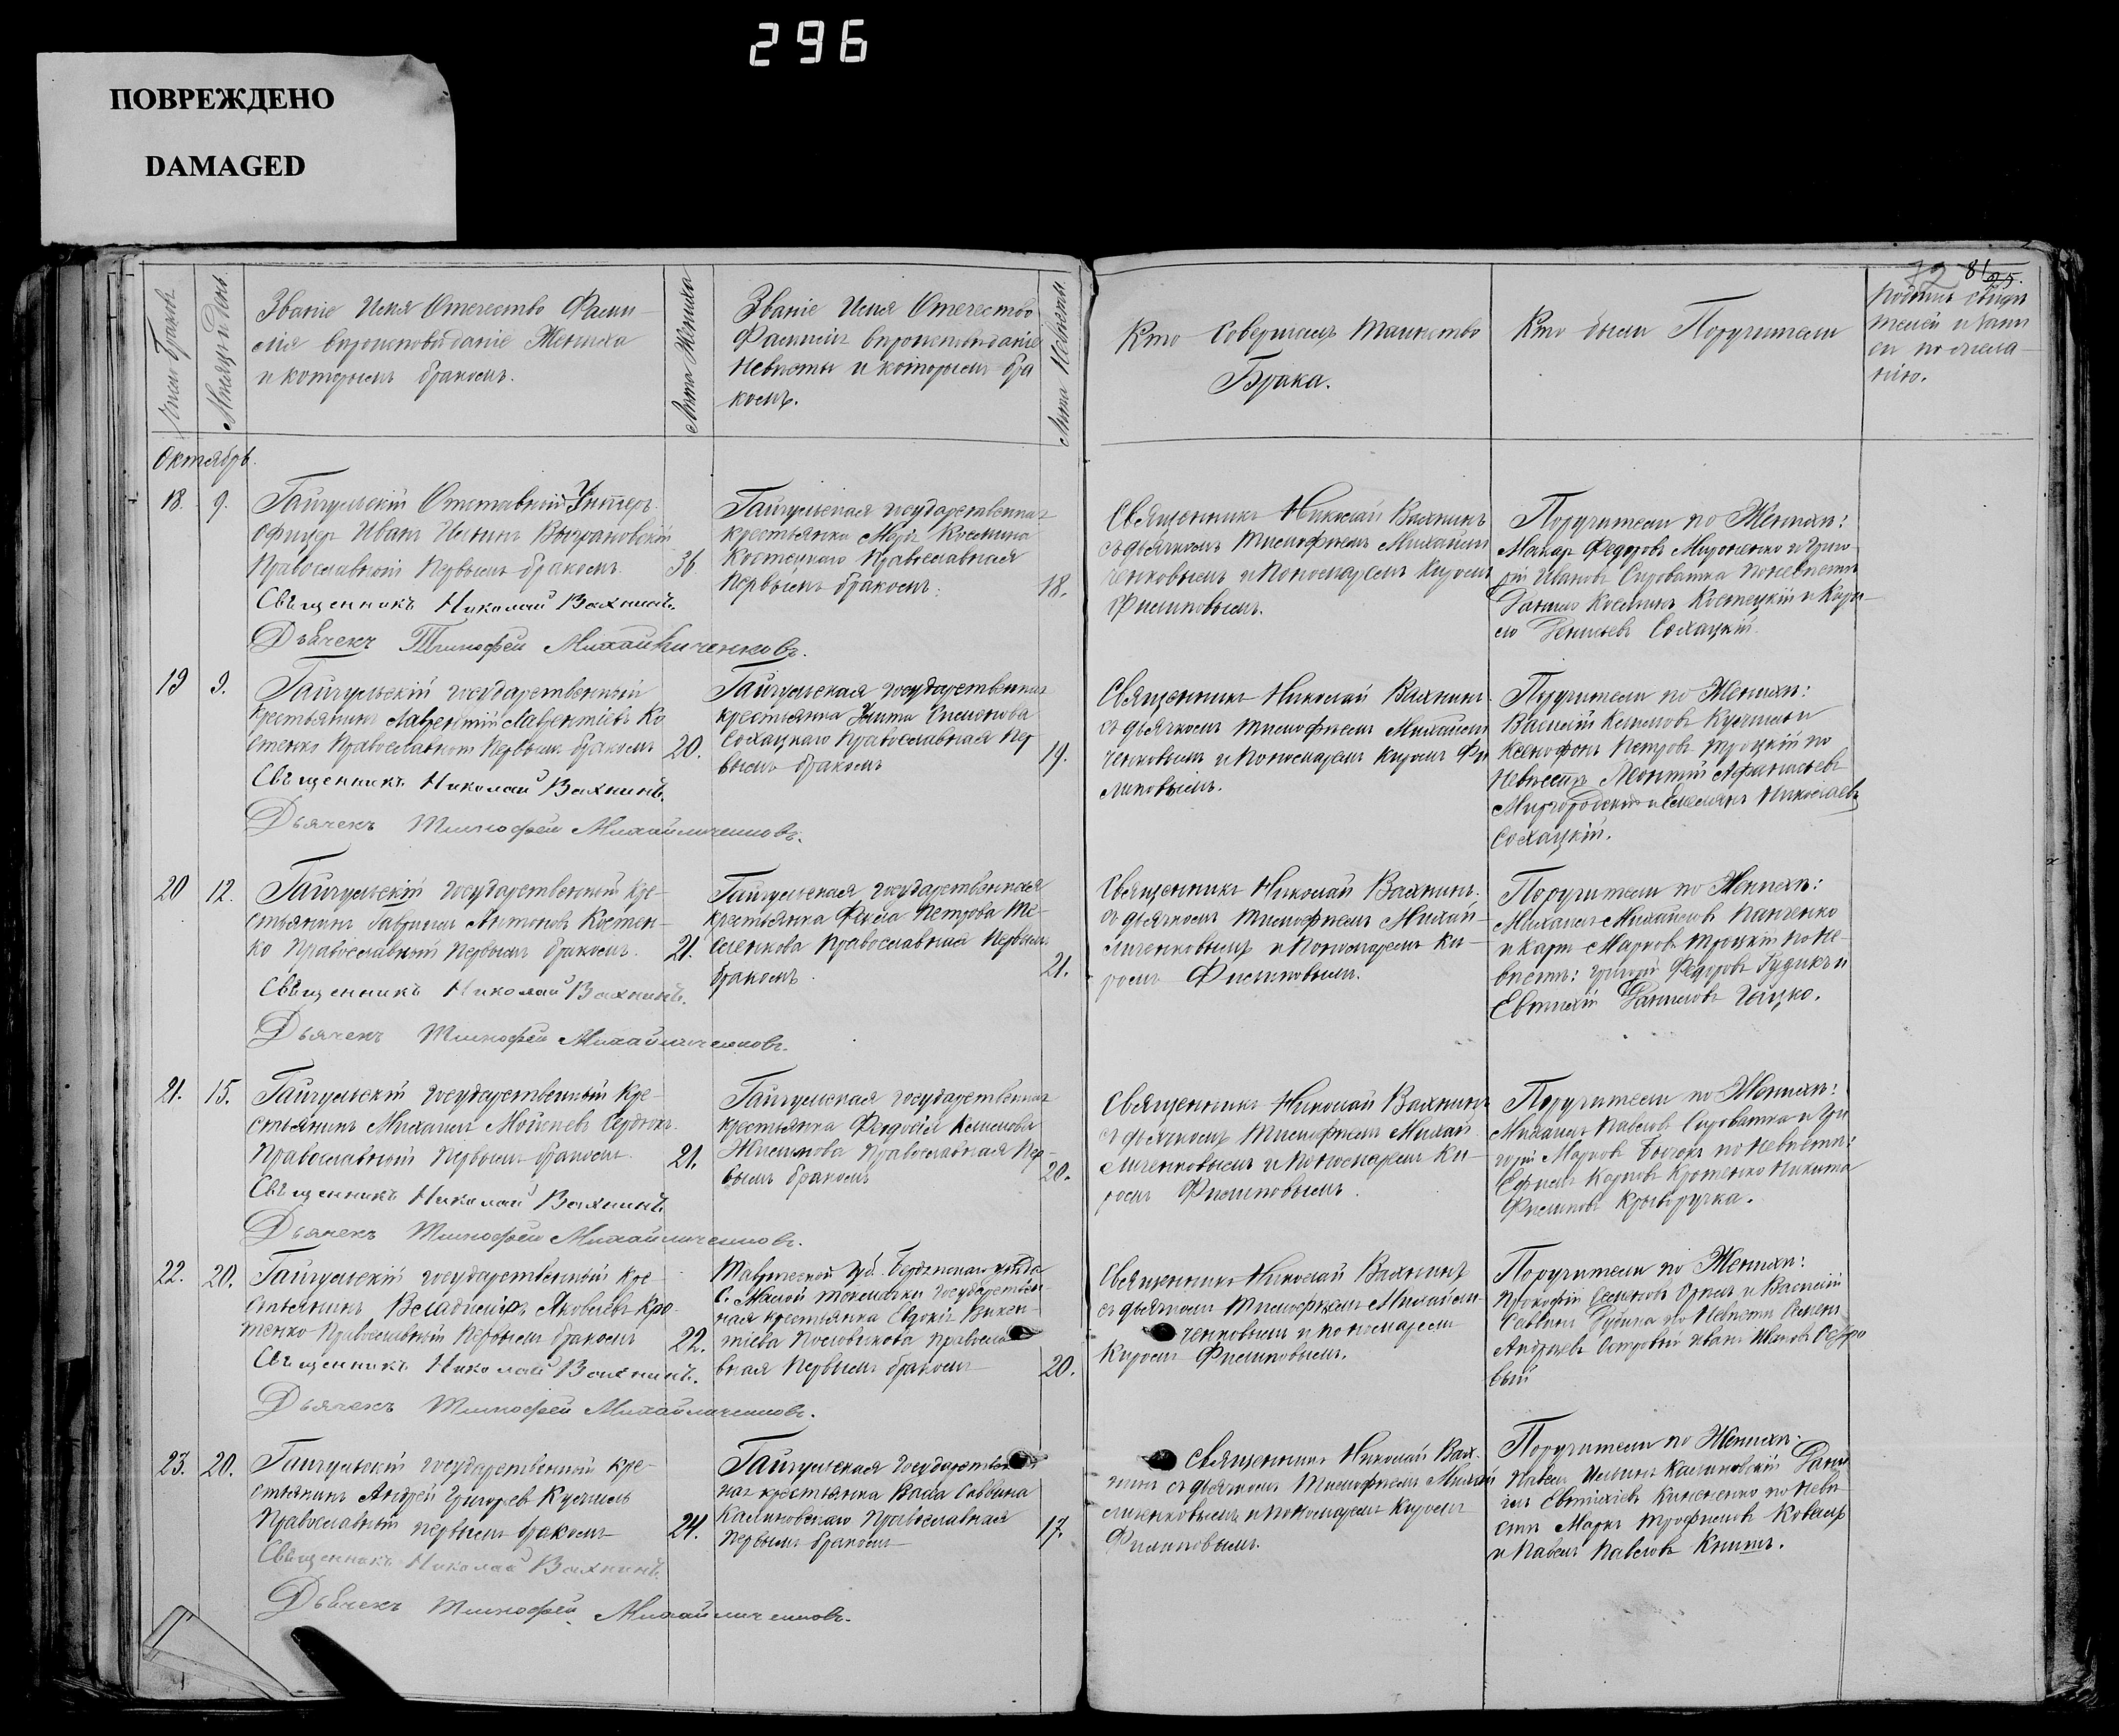 296
ПОВРЕЖДЕНО
DAMAGED
81
25.
Число Браковъ
Мѣсяцъ и День.
Званіе Имя Отечество Фами-
лія вѣроисповѣданіе Жениха
и которымъ бракомъ.
Лѣта Жениха
Званіе Имя Отечество
Фамилія вѣроисповѣданіе
Невѣсты и которымъ бра
комъ.
Лѣта Невѣсты.
Кто совершалъ Таинство
Брака.
Кто были Поручители
Подпись свидѣ
телей и запи
си по жела-
нію.
Октябрь.
18.
9.
Гайчульскій Отставной Унтеръ
Офицеръ Иванъ
Православный Первымъ бракомъ
36
Священникъ Николай Вахнинъ.
Дьячекъ Тимофей Михайличенковъ.
Гайчульская государственная
крестьянка Марія Космина
Костецкаго Православная
Первымъ бракомъ.
18.
Священникъ Николай Вахнинъ
съ дьячкомъ Тимофеемъ Михайли
ченковымъ и Пономаремъ Киромъ
Филиповымъ.
Поручители по Женихѣ:
Макаръ Федоровъ Мироненко и Григо-
рій Ивановъ Сыроватка по невѣстѣ
Данило Косминъ Костецкій и Кири-
ло Сохацкій.
19
9.
Гайчульскій государственный
крестьянинъ Лаврентій Лаврентіевъ Ко
стенко Православный Первымъ бракомъ
20.
Священникъ Николай Вахнинъ.
Дьячекъ Тимофей Михайличенковъ.
Гайчульская государственная
крестьянка Улита Симонова
Сохацкаго Православная Пер
вымъ бракомъ
19.
Священникъ Николай Вахнинъ.
съ дьячкомъ Тимофеемъ Михайли
ченковымъ и Пономаремъ Киромъ Фи
липовымъ.
Поручители по Женихѣ:
Василій Климовъ и
Ксенофонъ Петровъ Троцкій по
Невѣстѣ Леонтій Афанасьевъ
Миргородскій и Емельянъ Николаевъ
Сохацкій.
20
12.
Гайчульскій государственный кре-
стьянинъ Гавріилъ Антоновъ Костен-
ко Православный Первымъ бракомъ.
21.
Священникъ Николай Вахнинъ.
Дьячекъ Тимофей Михайличенковъ.
Гайчульская государственная
крестьянка Фекла Петрова
Православная Первымъ
бракомъ
21.
Священникъ Николай Вахнинъ.
съ дьячкомъ Тимофеемъ Михай-
личенковымъ и Пономаремъ Ки-
ромъ Филиповымъ.
Поручители по Женихѣ:
Михаилъ Михайловъ Панченко
и Карпъ Марковъ Троцкій по Не-
вѣстѣ: Григорій Федоровъ Гудикъ и
Евтихій Даниловъ
21.
15.
Гайчульскій государственный кре-
стьянинъ Михаилъ Моисеевъ Сердюкъ.
Православный Первымъ бракомъ
21.
Священникъ Николай Вахнинъ.
Дьячекъ Тимофей Михайличенковъ.
Гайчульская государственная
крестьянка Феодосія Климова
Православная Пер-
вымъ бракомъ
20.
Священникъ Николай Вахнинъ
съ дьячкомъ Тимофеемъ Михай
личенковымъ и Пономаремъ Ки-
ромъ Филиповымъ.
Поручители по Женихѣ:
Михаилъ Павловъ Сыроватка и Гри
горій Марковъ по Невѣстѣ:
Ефимъ Карповъ Кротенко Никита
Филиповъ Криворучка.
22.
20.
Гайчульскій государственный кре-
стьянинъ Владимиръ Яковлевъ Кро-
тенко Православный Первымъ бракомъ
22.
Священникъ Николай Вахнинъ.
Дьячекъ Тимофей Михайличенковъ.
Таврической Губ. Бердянскаго уѣзда
С. Малой Токмачки Государствен-
ная крестьянка Евдокія Викен-
тіева Православ
вная Первымъ бракомъ
20.
Священникъ Николай Вахнинъ
съ дьячкомъ Тимофеемъ Михайли-
ченковымъ и пономаремъ
Киромъ Филиповымъ.
Поручители по Женихѣ:
Прокофій и Василій
Саввинъ по Невѣстѣ
Андреевъ Островый Иванъ Ивановъ Остро
вый
23.
20.
Гайчульскій государственный кре-
стьянинъ Андрей Григорьевъ
Православный первымъ бракомъ
24.
Священникъ Николай Вахнинъ.
Дьячекъ Тимофей Михайличенковъ.
Гайчульская государствен
ная крестьянка Васа Саввина
Калиновскаго Православная
Первымъ бракомъ
17.
Священникъ Николай Вах-
нинъ съ дьячкомъ Тимофеемъ Михай
личенковымъ и пономаремъ Киромъ
Филиповымъ.
Поручители по Женихѣ:
Павелъ Ильинъ Калиновскій Дани
илъ Евтихіевъ по Невѣ-
стѣ Маркъ Трофимовъ Коваль
и Павелъ Павловъ